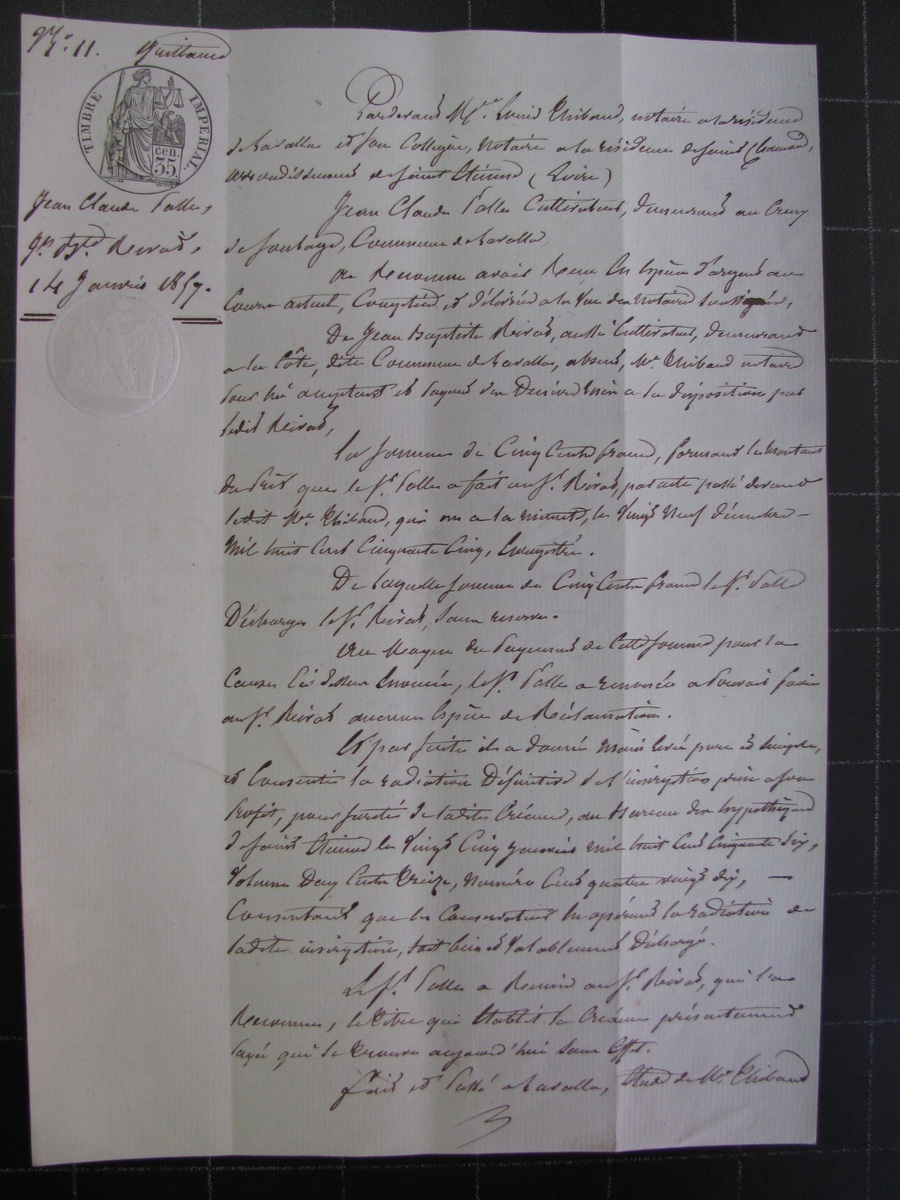 N.° 11. quittance
TIMBRE IMPERIAL.
35 cen.
Jean Claude Palle,
Jn. Bte. Rivat,
14 Janvier 1857.
Pardevant Me. Louis Thibaud, notaire a la résidence
de Lavalla et son Collègue, notaire a la résidence de Saint Chamond,
arrondissement de Saint Etienne (Loire)
Jean Claude Palle Cultivateur, demeurant au
de Commune de Lavalla,
a Reconnu avoir Recu En Espèce d'argent au
Cours actuel, Comptées et délivrées a la Vue des notaires soussignés,
De Jean Baptiste Rivat, aussi Cultivateur, demeurant
a la Côte, dite Commune de Lavalla, absent, Me. Thibaud notaire
pour lui acceptant et payant des Deniers mis a la disposition par
ledit Rivat,
La Somme de Cinq Cents francs, formant le montant
du Prêt que le Sr. Palle a fait au Sr. Rivat, par acte passé devant
ledit Me. Thibaud, qui en a la minute, le Vingt Neuf décembre
Mil huit Cent Cinquante Cinq, Enregistré.
De laquelle Somme de Cinq Cents francs le Sr. Palle
Décharge le Sr. Rivat, sans reserve.
Au Moyen du Payement de Cette Somme pour la
Cause Ci-dessus Enoncée, le Sr. Palle a renoncé a Pouvoir faire
au Sr. Rivat aucune Espèce de Réclamation.
Et par suite il a donné Main levée pure et Simple,
et Consenti la radiation Définitive de l'inscription prise a son
Profit, pour sureté de ladite Créance, au Bureau des hypothèques
de Saint Etienne le Vingt Cinq janvier mil huit Cent Cinquante Six,
Volume Deux Cents Treize, Numéro Cent quatre vingt dix,
Consentant que le Conservateur En opérant la radiation de
ladite inscription, soit bien et Valablement Déchargé.
Le Sr. Palle a Remis au Sr. Rivat, qui l'a
Reconnu, le Titre qui Etablit la Créance présentement
payée qui se trouve aujourd'hui sans Effet.
Fait et Passé a Lavalla, Etude de Me. Thibaud